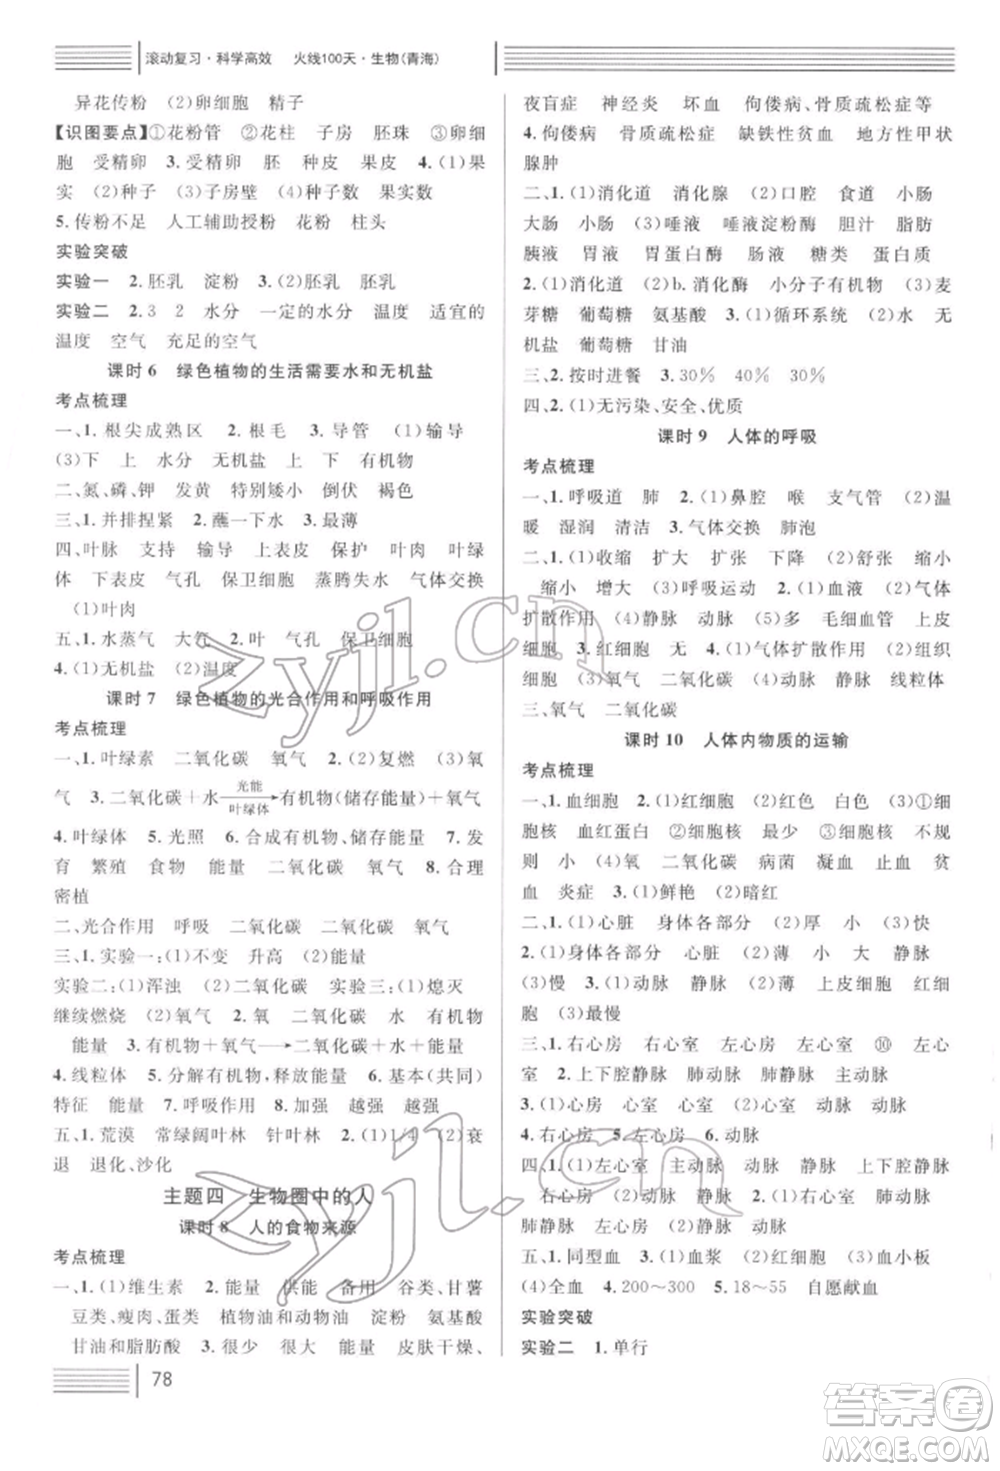 滚动复习·科学高效　火线100天·生物(青海)
异花传粉　(2)卵细胞　精子
【识图要点】①花粉管　②花柱　子房　胚珠　③卵细
胞　受精卵　3.受精卵　胚　种皮　果皮　4.(1)果
实　(2)种子　(3)子房壁　(4)种子数　果实数
5.传粉不足　人工辅助授粉　花粉　柱头
实验突破
实验一　2.胚乳　淀粉　3.(2)胚乳　胚乳
实验二　2.3　2　水分　一定的水分　温度　适宜的
温度　空气　充足的空气
课时 6　绿色植物的生活需要水和无机盐
考点梳理
一、1.根尖成熟区　2.根毛　3.导管　(1)输导
(3)下　上　水分　无机盐　上　下　有机物
二、氮、磷、钾　发黄　特别矮小　倒伏　褐色
三、1.并排捏紧　2.蘸一下水　3.最薄
四、叶脉　支持　输导　上表皮　保护　叶肉　叶绿
体　下表皮　气孔　保卫细胞　蒸腾失水　气体交换
(1)叶肉
五、1.水蒸气　大气　2.叶　气孔　保卫细胞
4.(1)无机盐　(2)温度
课时 7　绿色植物的光合作用和呼吸作用
考点梳理
一、1.叶绿素　二氧化碳　氧气　2.(2)复燃　(3)氧
气　3.二氧化碳＋水 光能→叶绿体 有机物(储存能量)＋氧气
4.叶绿体　5.光照　6.合成有机物、储存能量　7.发
育　繁殖　食物　能量　二氧化碳　氧气　8.合理
密植
二、光合作用　呼吸　二氧化碳　二氧化碳　氧气
三、实验一:(1)不变　升高　(2)能量
实验二:(1)浑浊　(2)二氧化碳　实验三:(1)熄灭
继续燃烧　(2)氧气　2.氧　二氧化碳　水　有机物
能量　3.有机物＋氧气→二氧化碳＋水＋能量
4.线粒体　5.分解有机物,释放能量　6.基本(共同)
特征　能量　7.呼吸作用　8.加强　越强　越强
五、1.荒漠　常绿阔叶林　针叶林　2.(1)1/4　(2)衰
退　退化、沙化
主题四　生物圈中的人
课时 8　人的食物来源
考点梳理
一、1.(1)维生素　2.能量　供能　备用　谷类、甘薯
豆类、瘦肉、蛋类　植物油和动物油　淀粉　氨基酸
甘油和脂肪酸　3.很少　很大　能量　皮肤干燥、
夜盲症　神经炎　坏血　佝偻病、骨质疏松症等
4.佝偻病　骨质疏松症　缺铁性贫血　地方性甲状
腺肿
二、1.(1)消化道　消化腺　(2)口腔　食道　小肠
大肠　小肠　(3)唾液　唾液淀粉酶　胆汁　脂肪
胰液　胃液　胃蛋白酶　肠液　糖类　蛋白质
2.(1)消化道　(2)b.消化腺　小分子有机物　(3)麦
芽糖　葡萄糖　氨基酸　3.(1)循环系统　(2)水　无
机盐　葡萄糖　甘油
三、2.按时进餐　3.30%　40%　30%
四、2.(1)无污染、安全、优质
课时 9　人体的呼吸
考点梳理
一、1.呼吸道　肺　2.(1)鼻腔　喉　支气管　(2)温
暖　湿润　清洁　3.气体交换　肺泡
二、1.(1)收缩　扩大　扩张　下降　(2)舒张　缩小
缩小　增大　(3)呼吸运动　2.(1)血液　(2)气体
扩散作用　(4)静脉　动脉　(5)多　毛细血管　上皮
细胞　3.(1)氧　4.(1)气体扩散作用　(2)组织
细胞　(3)氧气　二氧化碳　(4)动脉　静脉　线粒体
三、氧气　二氧化碳
课时 10　人体内物质的运输
考点梳理
一、1.血细胞　2.(1)红细胞　(2)红色　白色　(3)细
胞核　血红蛋白　②细胞核　较多　③细胞核　不规
则　小　(4)氧　二氧化碳　病菌　凝血　止血　贫
血　炎症　3.(1)鲜艳　(2)暗红
二、1.(1)心脏　身体各部分　(2)厚　小　(3)快
2.(1)身体各部分　心脏　(2)薄　小　大　静脉
(3)慢　3.(1)动脉　静脉　(2)薄　上皮细胞　红细
胞　(3)最慢
三、1.右心房　右心室　左心房　左心室　⑩　左心
室　2.上下腔静脉　肺动脉　肺静脉　主动脉
3.(1)心房　心室　心室　动脉　(2)心房　静脉
4.右心房　5.左心房　6.动脉
四、1.(1)左心室　主动脉　上下腔静脉
右心房　(2)静脉　动脉　2.(1)右心室　肺动脉
肺静脉　左心房　(2)动脉　静脉
五、1.同型血　3.(1)血浆　(2)红细胞　(3)血小板
(4)全血　4.200～300　5.18～55　自愿献血
实验突破
实验二　1.单行
78
zyjl.cn
zyjl.cn
答案卷
MXQE.COM